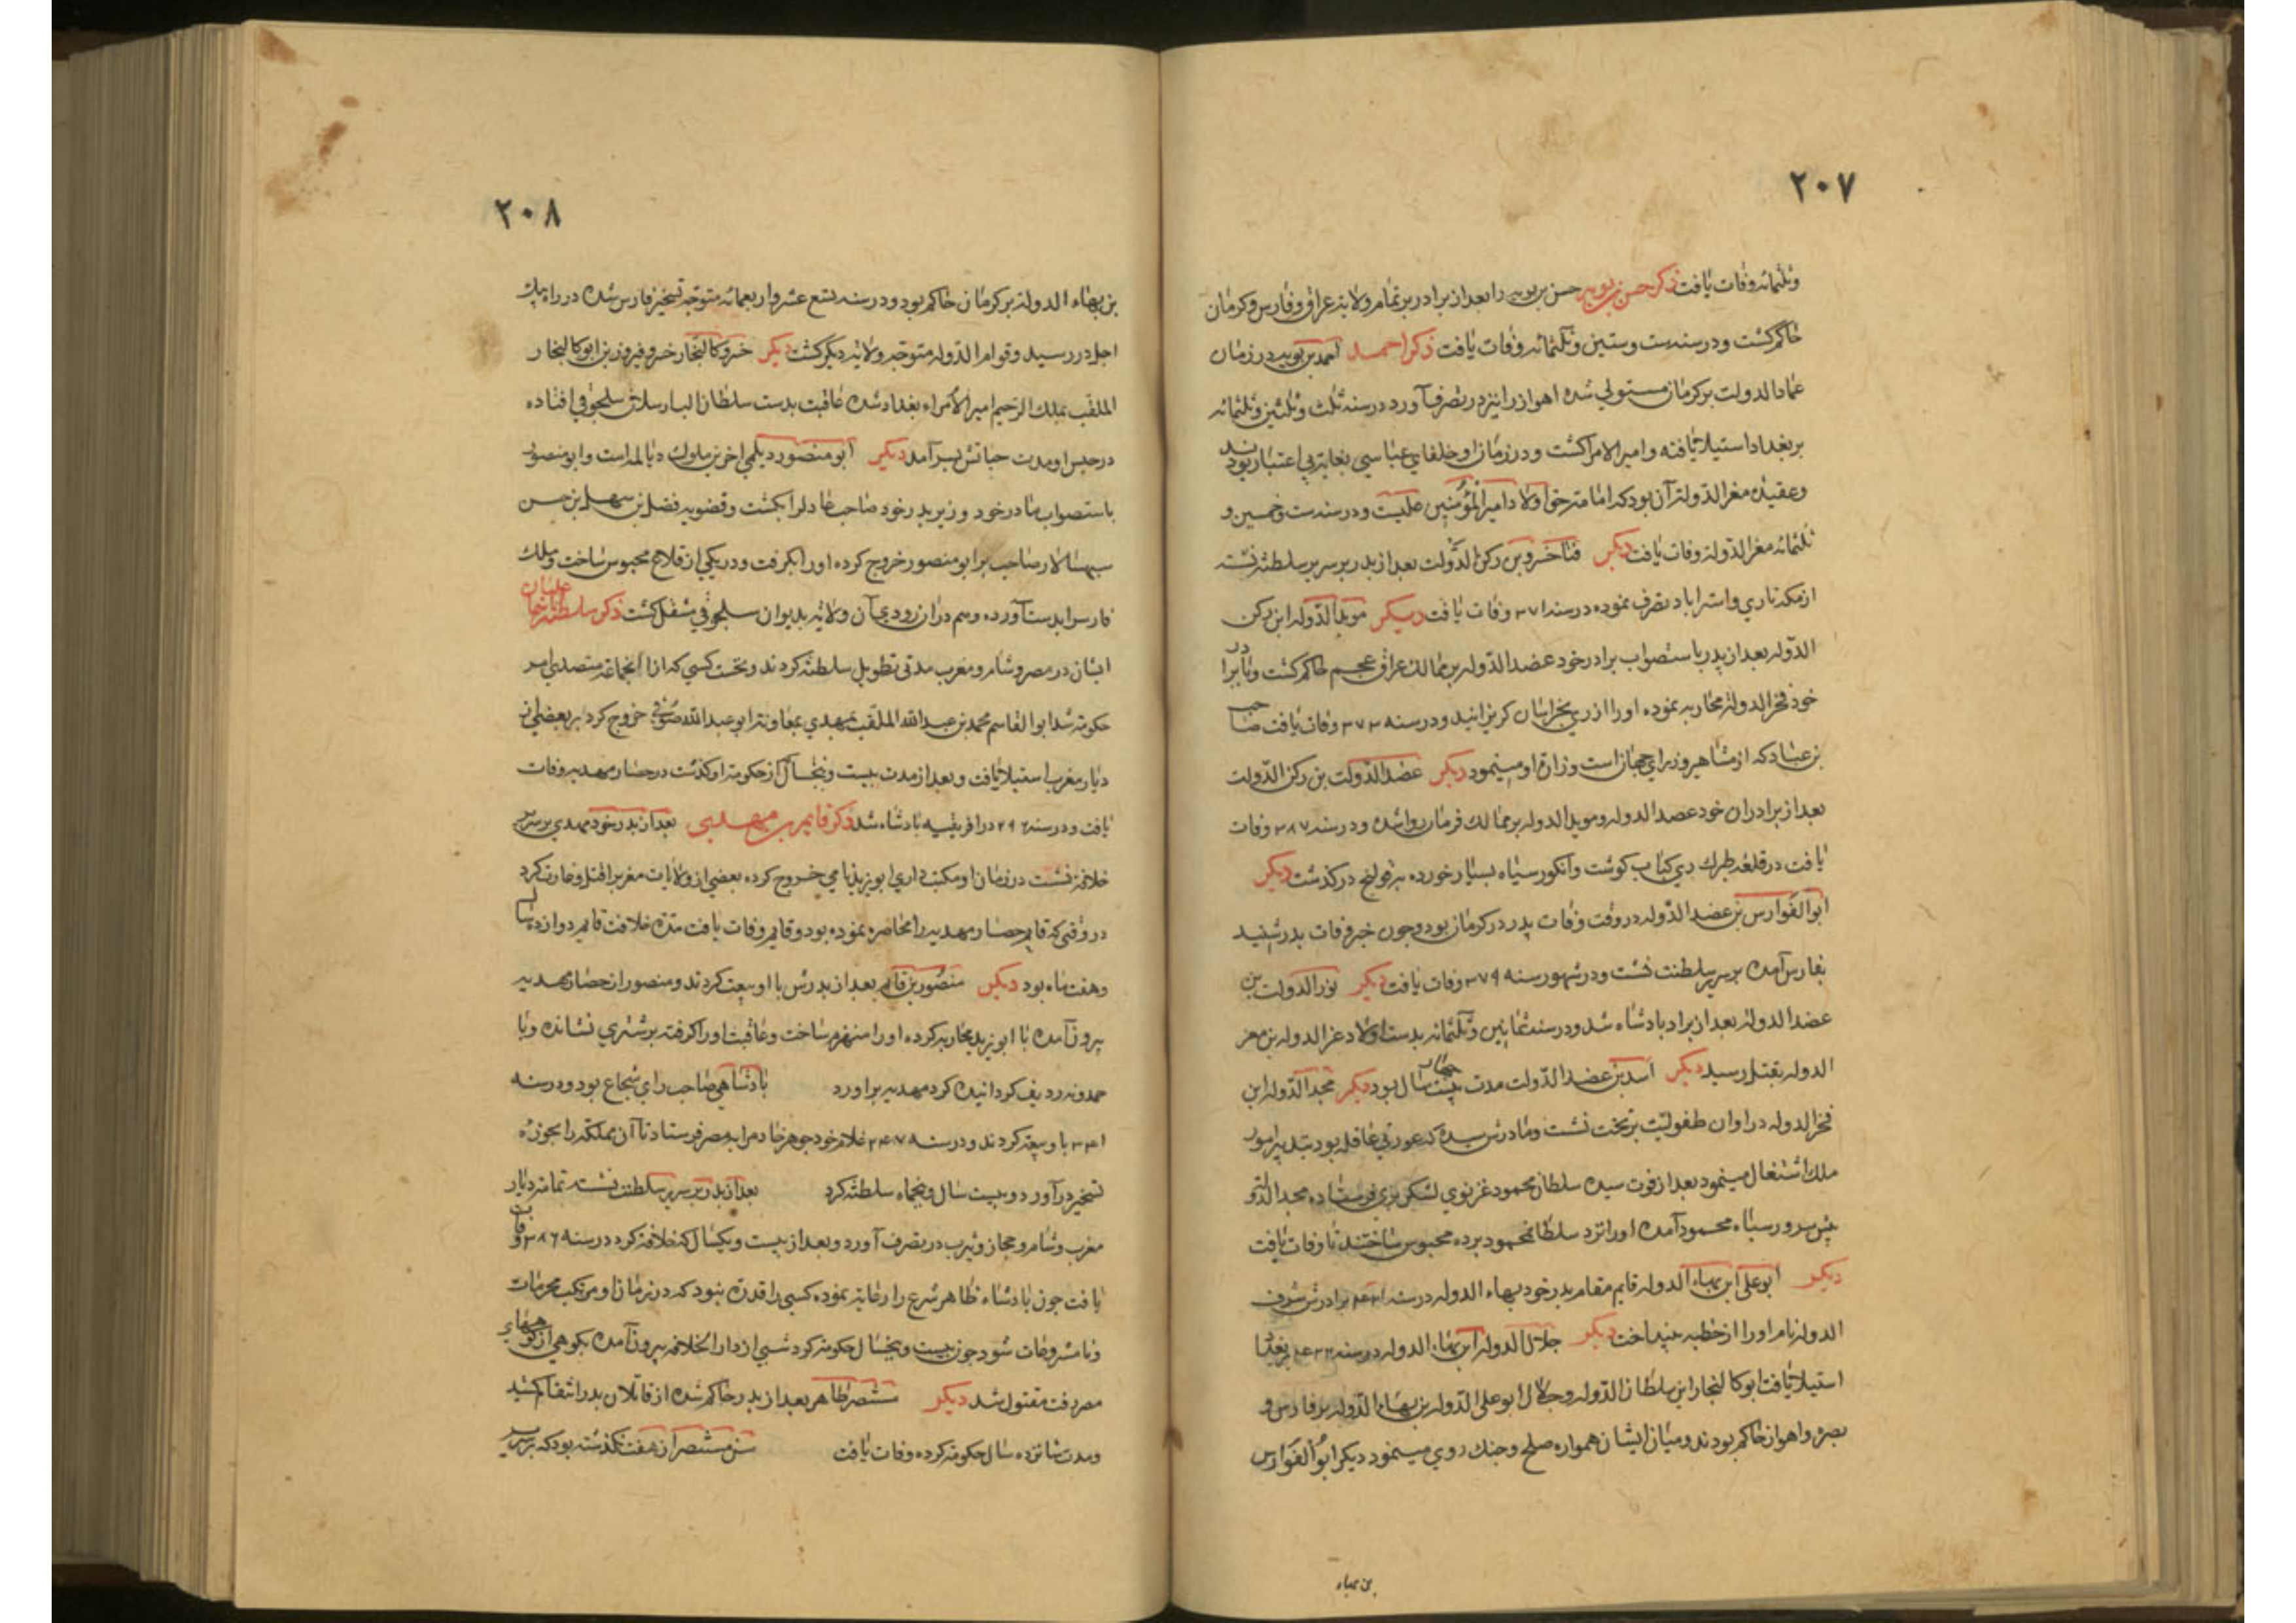 ۲۰۷
وثلثمائه وفات یافت ذکر حسن بن بویه حسن بن بویه را بعد از برادر بر تمام ولایة عراق وفارس وکرمان
حاکم کشت ودر سنه ست وستین وثلثمائه وفات یافت ذکر احمد احمد بن بویه در زمان
عماد الدولت بر کرمان مستولی شده اهواز را نیز در تصرف آورد در سنه ثلث وثلثین وثلثمائه
بر بغداد استیلا یافته وامیر الامرا کشت ودر زمان او خلفای عباسی بغایة بی اعتبار بودند
وعقیده معز الدولة آن بود که امامة حق اولاد امیر المؤمنین علیست ودر سنه ست وخمسین و
ثلثمائه معز الدولة وفات یافت دیکر فناخسرو بن رکن الدولت بعد از پدر بر سریر سلطنة نشسته
از مکه تا ری واستراباد تصرف نموده در سنه ۳۷۱ وفات یافت دیکر موید الدوله ابن رکن
الدوله بعد از پدر باستصواب برادر خود عضد الدوله بر ممالک عراق عجم حاکم کشت وبا برادر
خود فخر الدولة محاربه نموده او را از ری بخراسان کریزانید ودر سنه ۳۷۳ وفات یافت صاحب
بن عباد که از مشاهیر وزرای جهان است وزارة او مینمود دیکر عضد الدولت بن رکن الدولت
بعد از برادران خود عضد الدوله وموید الدوله بر ممالک فرمان روا شده ودر سنه ۳۸۷ وفات
یافت در قلعه طبرک ری کباب کوشت وانکور سیاه بسیار خورده بقولنج در کذشت دیکر
ابو الفوارس بن عضد الدوله در وقت وفات پدر در کرمان بود وچون خبر وفات پدر شنید
بفارس آمده بر سریر سلطنت نشست ودر شهور سنه ۳۷۹ وفات یافت دیکر نور الدولت بن
عضد الدولة بعد از برادر بادشاه شد ودر سنه ثمانین وثلثمائه بدست اولاد عز الدوله بن معز
الدوله بقتل رسید دیکر اسد بن عضد الدولت مدت بیست سال بود دیکر مجد الدوله ابن
فخر الدوله در اوان طفولیت بر تخت نشست ومادرش سیده که عورتی عاقله بود بتدبیر امور
ملک اشتغال مینمود بعد از فوت سیده سلطان محمود غزنوی لشکر بری فرستاده مجد الدوله
پیش سرور سپاه محمود آمده او را نزد سلطان محمود برده محبوس ساختند تا وفات یافت
دیکر ابو علی ابن بهاء الدوله قایم مقام پدر خود بهاء الدوله در سنه برادرش شرف
الدولة نام او را از خطبه بینداخت دیکر جلال الدوله ابن بهاء الدوله در سنه بر بغداد
استیلا یافت ابو کالنجار ابن سلطان الدوله وجلال ابو علی الدوله بن بهاء الدوله بر فارس و
بصره واهواز حاکم بودند ومیان ایشان همواره صلح وجنک روی مینمود دیکر ابو الفوارس
بن بهاء
۲۰۸
بن بهاء الدولة بر کرمان حاکم بود ودر سنه تسع عشر واربعمائه متوجه تسخیر فارس شده در راه پیک
اجل در رسید وقوام الدوله متوجه ولایة دیکر کشت دیکر خسرو کالنجار خسرو فیروز بن ابو کالنجار
الملقب بملک الرحیم امیر الامراء بغداد شده عاقبت بدست سلطان الب ارسلان سلجوقی افتاده
در حبس او مدت حیاتش بسر آمد دیکر ابو منصور دیلمی اخرین ملوک دیالمه است وابو منصور
باستصواب مادر خود وزیر پدر خود صاحب عادل را بکشت وقضویه فضل بن سهل بن حسن
سپهسالار صاحب بر ابو منصور خروج کرده او را بکرفت ودر یکی از قلاع محبوس ساخت وملک
فارس را بدست آورده وهم در ان زودی آن ولایة بدیوان سلجوقی منتقل کشت ذکر سلطنة
ایشان در مصر وشام ومغرب مدتی تطویل سلطنة کردند ونخست کسی که از انجماعة متصدی امر
حکومة شد ابو القاسم محمد بن عبد الله الملقب بمهدی بمعاونة ابو عبد الله صوفی خروج کرد بر بعضی از
دیار مغرب استیلا یافت وبعد از مدت بیست وپنجسال کز حکومة او کذشت در حصار مهدیه وفات
یافت ودر سنه ۲۹۶ در افریقیه بادشاه شد ذکر قایم بن مهدی بعد از پدر خود مهدی بر سریر
خلافة نشست در زمان او مکتب داری ابو یزید نامی خروج کرده بعضی از ولایات مغرب را قتل وغارت کرد
در وقتی که قایم حصار مهدیه را محاصره نموده بود وقایم وفات یافت مدة خلافت قایم دوازده سال
وهفت ماه بود دیکر منصور بن قایم بعد از پدرش با او بیعت کردند ومنصور از حصار مهدیه
بیرون آمده با ابو یزید محاربه کرده او را منهزم ساخت وعاقبت او را کرفته بر شتری نشانده وبا
حمدونه ردیف کردانیده کرد مهدیه بر اورد بادشاهی صاحب رای شجاع بود ودر سنه
۳۴۱ با او بیعة کردند ودر سنه غلام خود جوهر خادم را بمصر فرستاد تا آن مملکة را بحوزه
تسخیر در آورد دو بیست سال وپنجماه سلطنة کرد بعد از پدر بر سریر سلطنت نشسته تمامة دیار
مغرب وشام وحجاز ویثرب در تصرف آورد وبعد از بیست ویکسال که خلافة کرد در سنه ۳۸۶ وفات
یافت چون بادشاه ظاهر شرع را رعایة نموده کسی را قدرة نبود که در زمان او مرتکب محرمات
ونامشروعات شود چون بیست وپنجسال حکومة کرد شبی از دار الخلافه بیرون آمده بکوهی از کوههای
مصر رفت مقتول شد دیکر مستنصر ظاهر بعد از پدر حاکم شده از قاتلان پدر انتقام کشید
ومدت شانزده سال حکومة کرده وفات یافت سن مستنصر از هفت نکذشته بود که بر سریر